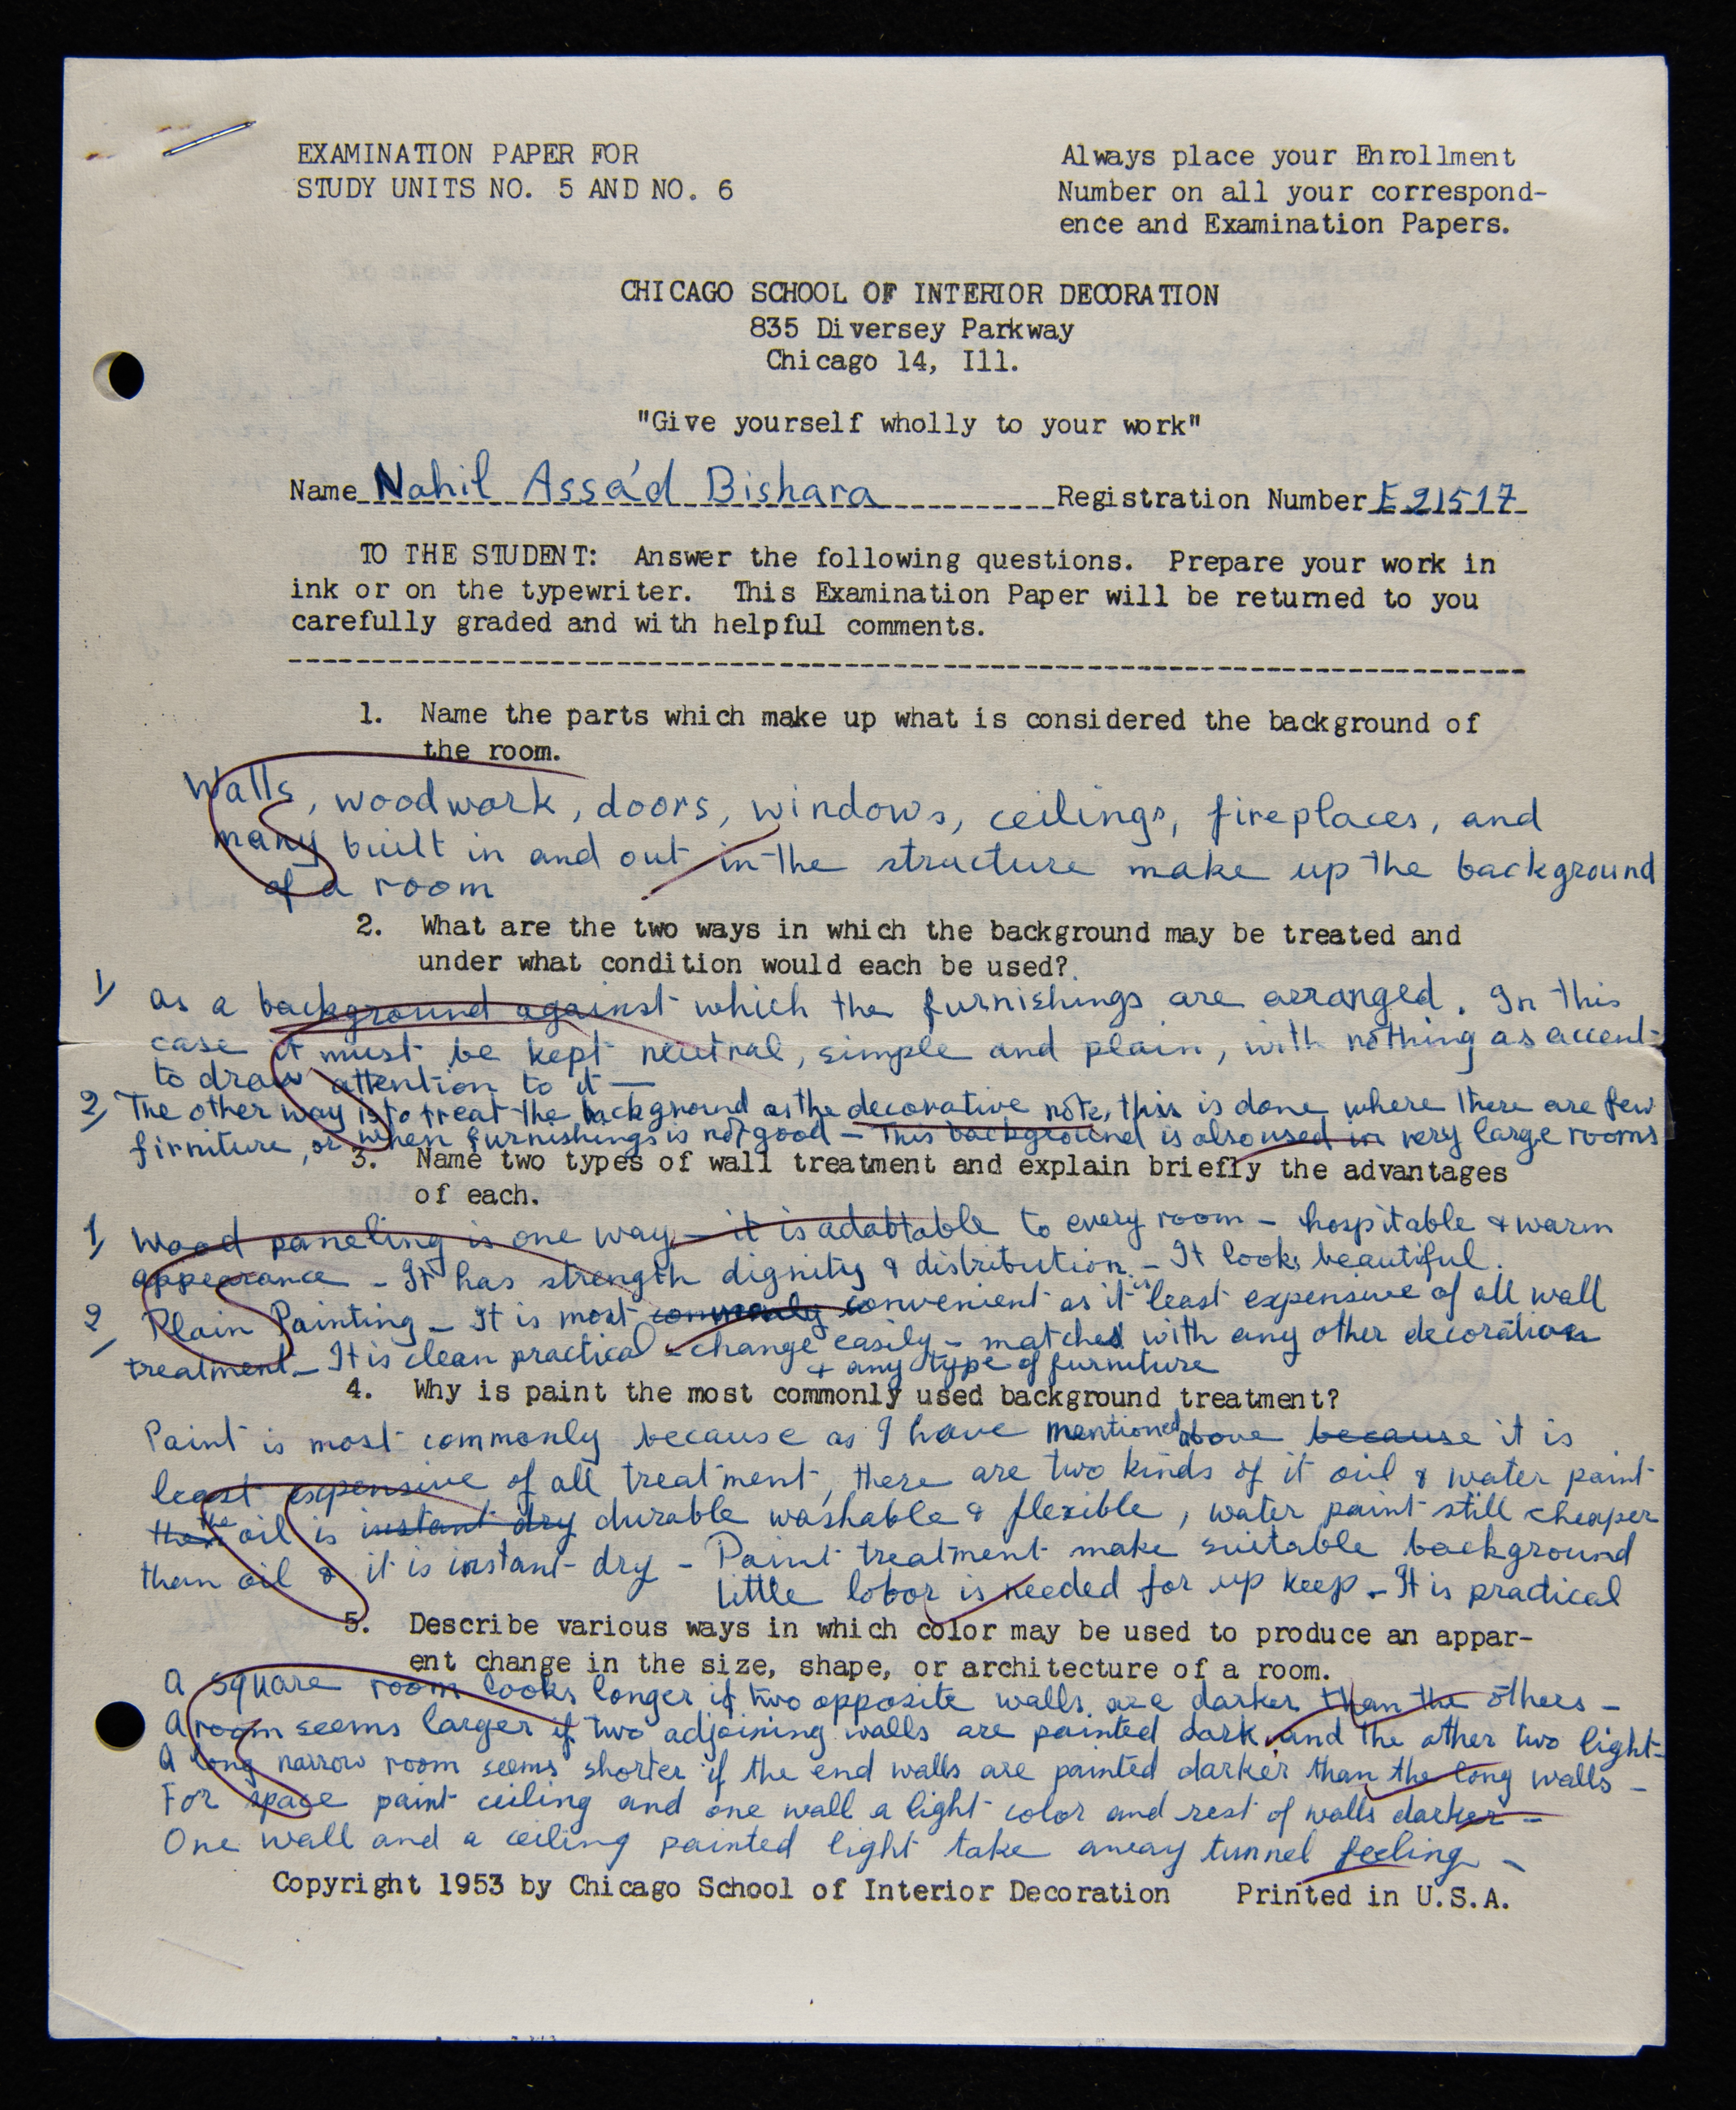 EXAMINATION PAPER FOR
STUDY UNITS NO. 5 AND NO. 6
Always place your Enrollment
Number on all your correspond-
ence and Examination Papers.
CHICAGO SCHOOL OF INTERIOR DECORATION
835 Diversey Parkway
Chicago 14, Ill.
"Give yourself wholly to your work"
Name Nahil Assa'd Bishara Registration Number E21517
TO THE STUDENT: Answer the following questions. Prepare your work in
ink or on the typewriter. This Examination Paper will be returned to you
carefully graded and with helpful comments.
1. Name the parts which make up what is considered the background of
the room.
Walls, woodwork, doors, windows, ceilings, fireplaces, and
many built in and out in the structure make up the background
of a room
2. What are the two ways in which the background may be treated and
under what condition would each be used?
1) as a background against which the furnishings are arranged. In this
case it must be kept neutral, simple and plain, with nothing as accent
to draw attention to it —
2) The other way is to treat the background as the decorative note, this is done where there are few
firniture, or when furnishings is not good - This background is also used in very large rooms
3. Name two types of wall treatment and explain briefly the advantages
of each.
1) Wood paneling is one way - it is adabtable to every room - hospitable & warm
appearance - It has strength dignity & distribution. - It looks beautiful.
2) Plain Painting - It is most commonly convenient as it is least expensive of all wall
treatment - It is clean practical - change easily - matches with any other decoration
+ any type of furniture
4. Why is paint the most commonly used background treatment?
Paint is most commonly because as I have mentioned above because it is
least expensive of all treatment, there are two kinds of it oil & water paint
the oil is instant dry durable washable & flexible, water paint still cheaper
than oil & it is instant dry - Paint treatment make suitable background
little labor is needed for up keep - It is practical
5. Describe various ways in which color may be used to produce an appar-
ent change in the size, shape, or architecture of a room.
A square room looks longer if two opposite walls are darker than the others -
A room seems larger if two adjoining walls are painted dark and the other two light-
A long narrow room seems shorter if the end walls are painted darker than the long walls -
For space paint ceiling and one wall a light color and rest of walls darker -
One wall and a ceiling painted light take away tunnel feeling -
Copyright 1953 by Chicago School of Interior Decoration Printed in U.S.A.